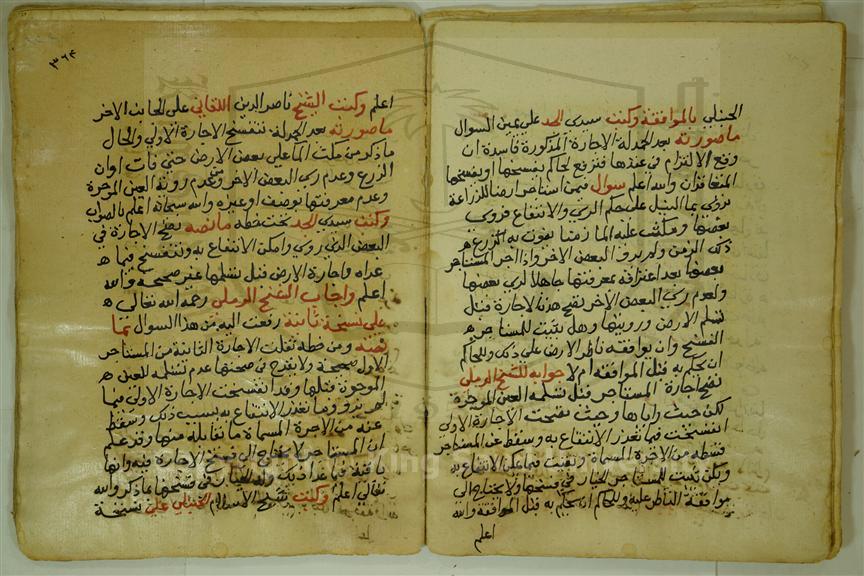 الحنبلي بالموافقة وكتب سيدي الجد على عين السوال
ما صورته بعد الحمدلة الاجارة المذكورة فاسدة ان
وقع الالتزام في عقدها فترفع لحاكم يفسخها او يفسخها
المتعاقدان والله اعلم سوال فيمن استاجر ارضا للزراعة
تروى بماء النيل على حكم الري والانتفاع فروى
بعضها ومكث عليه الما زمنا يفوت به الزرع
ذلك الزمن ولم يرو البعض الاخر واذا اجر المستاجر
بعضها بعد اعترافه بمعرفتها جاهلا لري بعضها
ولعدم ري البعض الاخر تصح هذه الاجارة قبل
تسلم الارض ورويتها وهل يثبت للمستاجر
الفسخ وان يوافقه ناظر الارض على ذلك وللحاكم
ان يحكم به قبل الموافقة ام لا جوابه للشيخ الرملي
تصح اجارة المستاجر قبل تسلمه العين الموجرة
لكن حيث راها وحيث انفسخت الاجارة الاولى
انفسخت فيما تعذر الانتفاع به وسقط عن المستاجر
قسطه من الاجرة المسماة وبقيت فيما يمكن الانتفاع به
ولكن يثبت للمستاجر الخيار في فسخها ولا يحتاج الى
موافقة الناظر عليه وللحاكم ان يحكم به قبل الموافقة والله
اعلم
٣٦٤
اعلم وكتب الشيخ ناصر الدين اللقاني على الجانب الاخر
ما صورته بعد الحمدلة تنفسخ الاجارة الاولى والحال
ما ذكر من مكث الما على بعض الارض حتى فات اوان
الزرع وعدم ري البعض الاخر وعدم روية العين الموجرة
وعدم معرفتها بوصف او غيره والله سبحانه اعلم بالصواب
وكتب سيدي الجد تحت خطه ما نصه تصح الاجارة في
البعض الذي روي وامكن الانتفاع به وتنفسخ فيما
عداه واجارة الارض قبل تسلمها غير صحيحة والله
اعلم واجاب الشيخ الرملي رحمه الله تعالى
على نسخة ثانية رفعت اليه من هذا السوال بما
نصه ومن خطه نقلت الاجارة الثانية من المستاجر
الاول صحيحة ولا يقدح في صحتها عدم تسلمه للعين
الموجرة قبلها وقد انفسخت الاجارة الاولى فيما
لم يرو وما تعذر الانتفاع به بسبب ذلك وسقط
عنه من الاجرة المسماة ما يقابله منها وقد علم
ان المستاجر لا يحتاج الى فسخ الاجارة فيه وانها
باقية فيما عدا ذلك وله الخيار في فسخها بما ذكر والله
تعالى اعلم وكتب شيخ الاسلام الحنبلي على نسخة